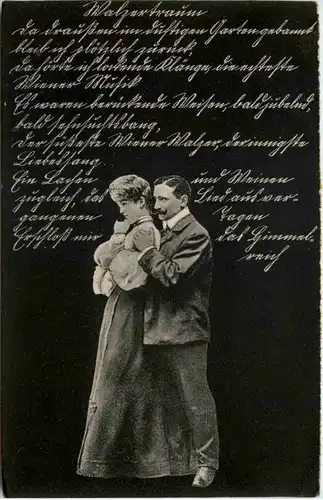 Walzertraum
Da draußen im duftigen Garten gebannt
blieb ich plötzlich zurück
da hörte ich lockende Klänge, die echteste
Wiener Musik
Es waren berückende Weisen, bald jubelnd,
bald sehnsuchtsbang,
Der süsseste Wiener Walzer, der innigste
Liebessang.
Ein Lachen und Weinen
zugleich, das Lied aus ver-
gangenen Tagen
Erschloß mir das Himmel-
reich